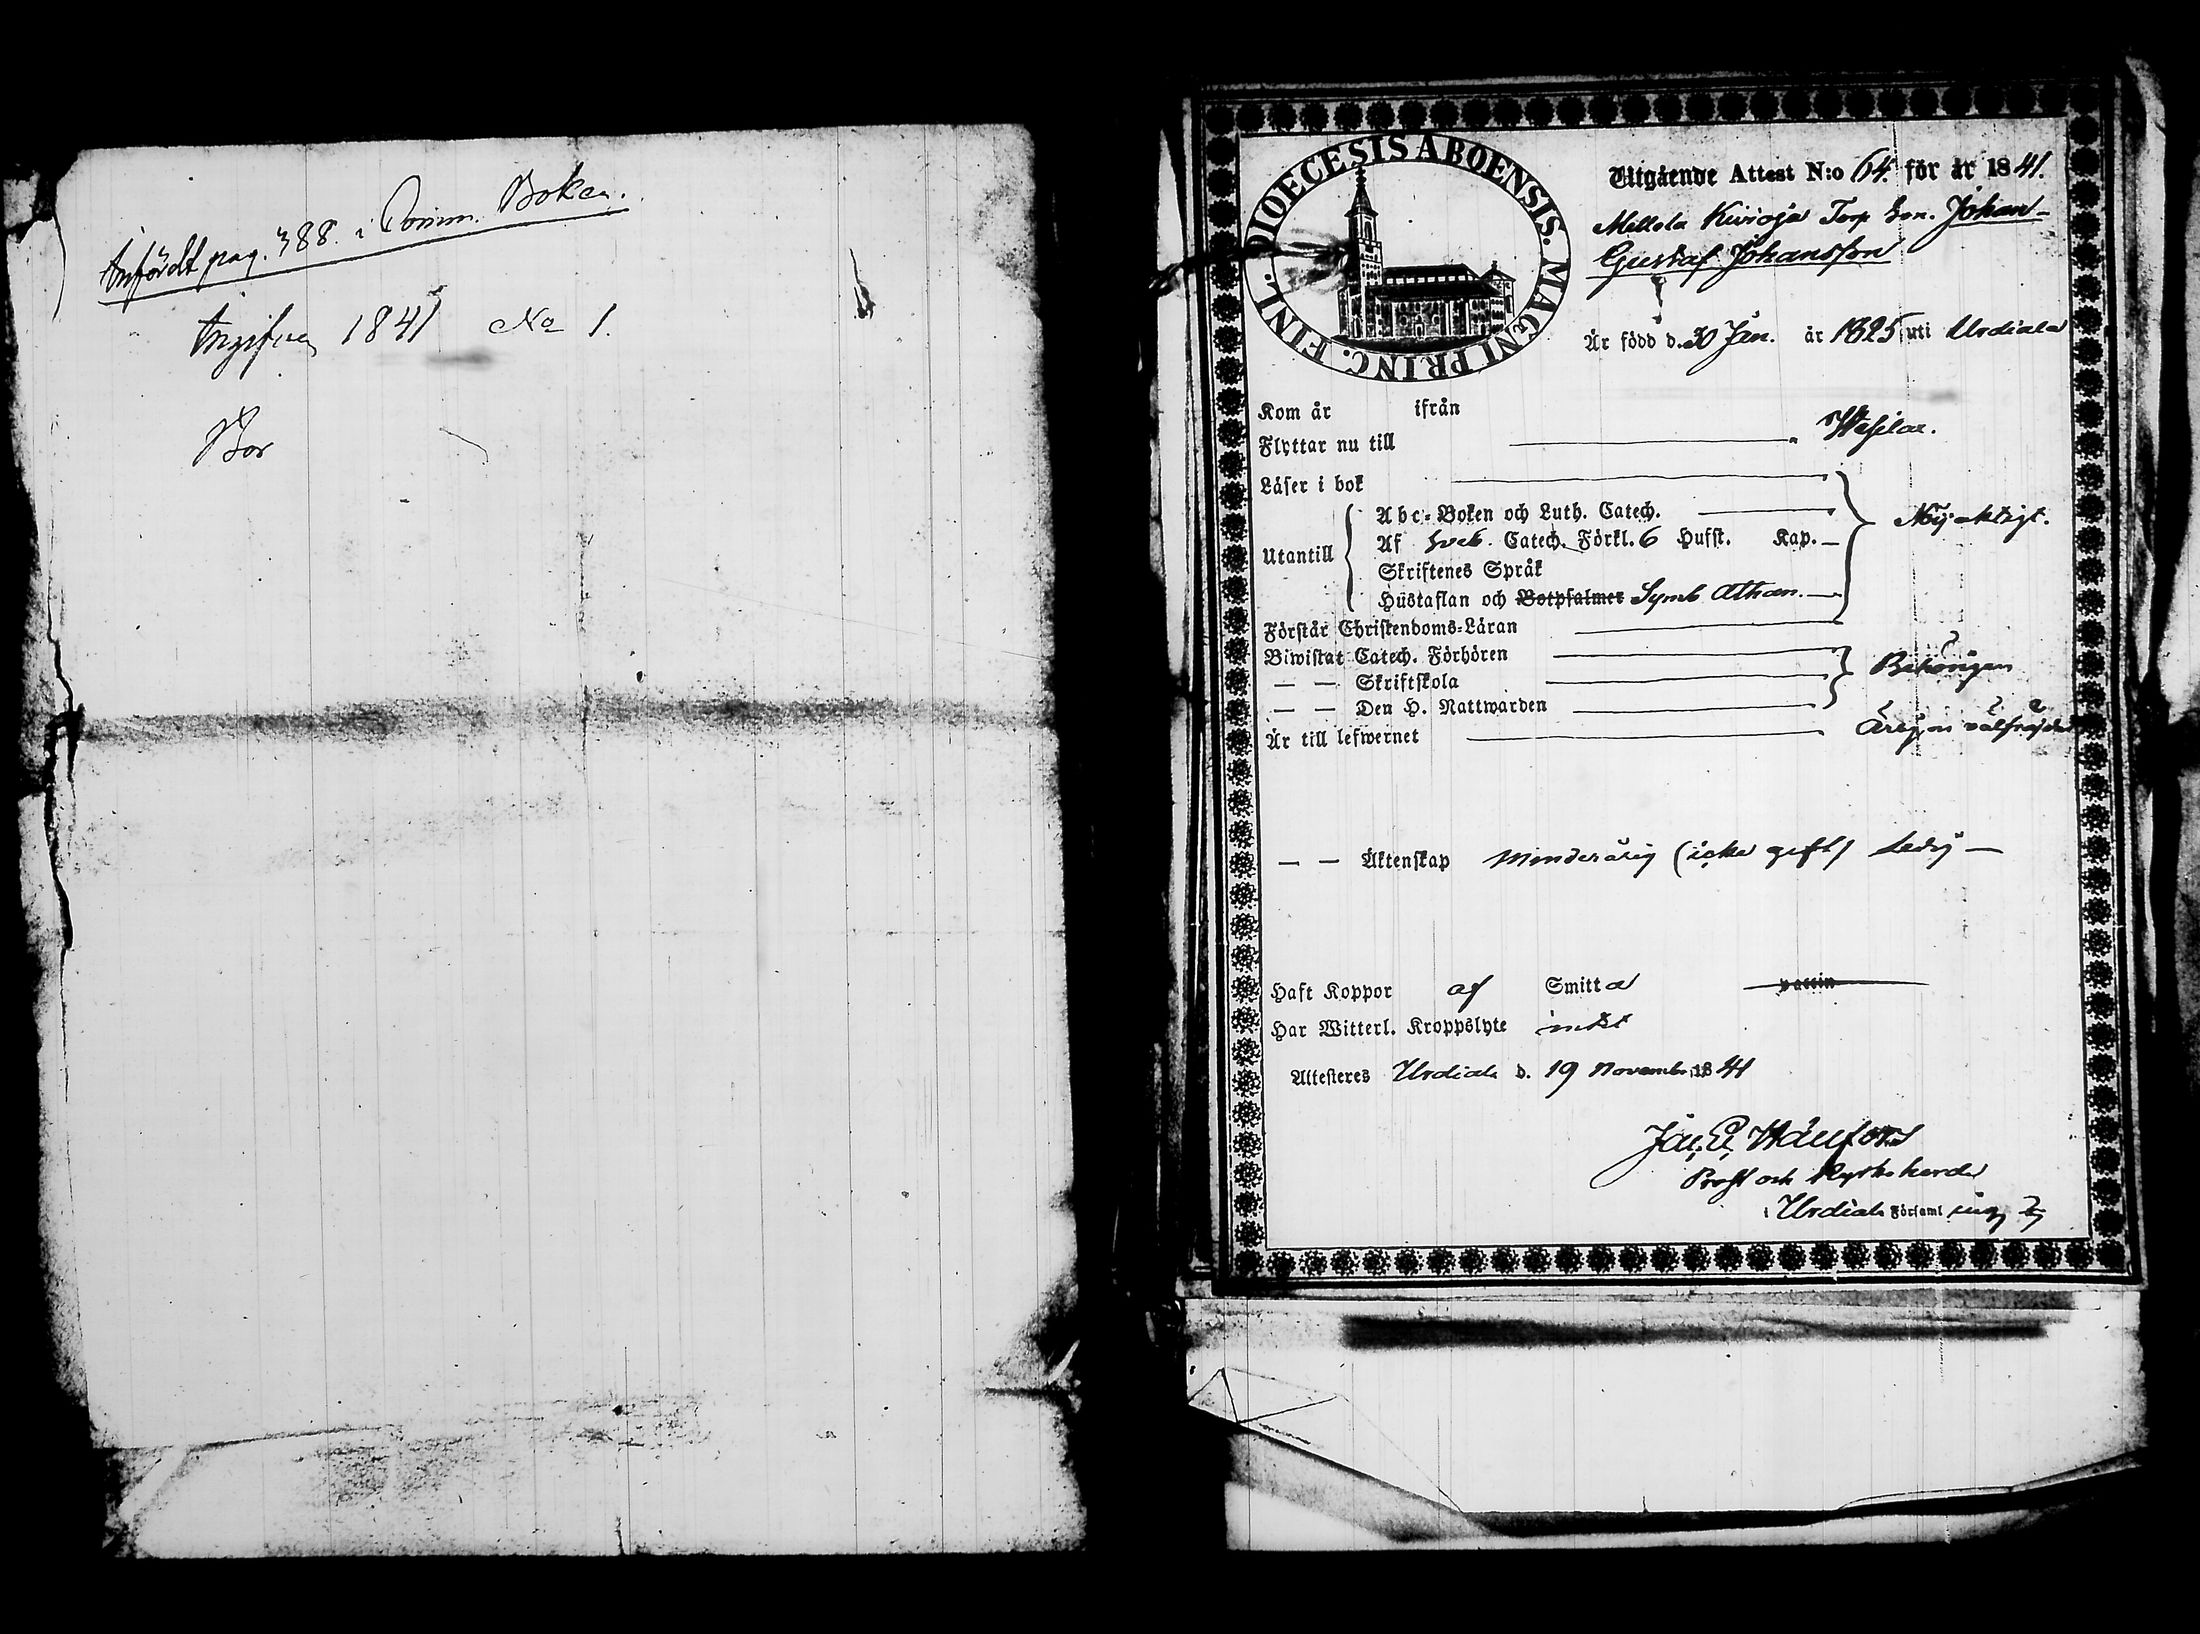 Anfördt pag. 388. i Comm. Boken.
Angifven 1841 No 1.
Bor
DIOECESIS ABOENSIS. MAGNI PRINC. FINL.
Utgående Attest N:o 64. för år 1841.
Mellola Kivioja Torp Son. Johan
Gustaf Johansson
Är född d. 30 Jan. år 1825 uti Urdiala
Kom år ifrån
Flyttar nu till Wesilax.
Läser i bok
Abc-Boken och Luth. Catech.
Utantill Af Sveb. Catech. Förkl. 6 Hufst. Kap. Nöjaktigt.
Skriftenes Språk
Hustaflan och Botpsalmer Symb Athan.
Förstår Christendoms-Läran
Biwistat Catech. Förhören
— — Skriftskola Behörigen
— — Den H. Nattwarden
Är till lefwernet
— — Äktenskap Minderårig (icke gift) Ledig —
Haft Koppor af Smitta vaccin
Har Witterl. Kroppslyte intet
Attesteres Urdiala d. 19 November 1841
Prost och Kyrkoherde
i Urdiala Församling